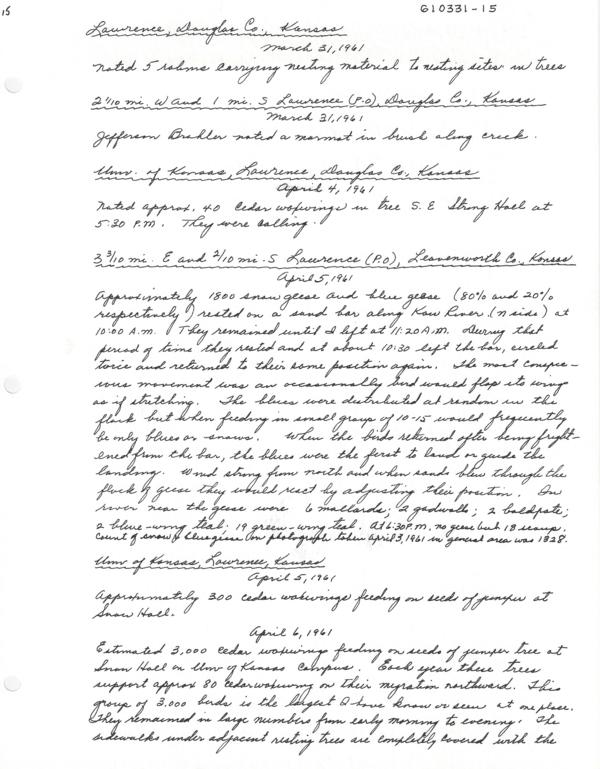 15
G10331-15
Lawrence, Douglas Co., Kansas
March 31, 1961
Noted 5 robins carrying nesting material to nesting sites in trees
2 1/10 mi. W and 1 mi. S Lawrence (P.O), Douglas Co., Kansas
March 31, 1961
Jefferson Brahler noted a marmot in brush along creek.
Univ. of Kansas, Lawrence, Douglas Co., Kansas
April 4, 1961
Noted approx. 40 Cedar waxwings in tree S.E Strong Hall at
5:30 P.M. They were calling.
3 3/10 mi. E and 2/10 mi. S Lawrence (P.O), Leavenworth Co., Kansas
April 5, 1961
Approximately 1800 snow geese and blue geese (80% and 20%
respectively) rested on a sand bar along Kaw River (N side) at
10:00 A.M. They remained until I left at 11:20 A.M. During that
period of time they rested and at about 10:30 left the bar, circled
twice and returned to their same position again. The most conspic-
uous movement was an occasionally bird would flap its wings
as if stretching. The blues were distributed at random in the
flock but when feeding in small group of 10-15 would frequently
be only blues or snows. When the birds returned after being fright-
ened from the bar, the blues were the first to land or guide the
landing. Wind strong from north and when sands blew through the
flock of geese they would react by adjusting their position. In
river near the geese were 6 mallards; 2 gadwalls; 2 baldpate;
2 blue-wing teal; 19 green-wing teal. At 6:30 P.M. no geese but 18 scaups.
Count of snow & blue geese on photograph taken April 3, 1961 in general area was 1828.
Univ of Kansas, Lawrence, Kansas
April 5, 1961
Approximately 300 cedar waxwings feeding on seeds of juniper at
Snow Hall.
April 6, 1961
Estimated 3,000 cedar waxwings feeding on seeds of juniper tree at
Snow Hall on Univ of Kansas Campus. Each year these trees
support approx 80 cedar waxwing on their migration northward. This
group of 3,000 birds is the largest I have know or seen at one place.
They remained in large numbers from early morning to evening. The
sidewalks under adjacent resting trees are completely covered with the